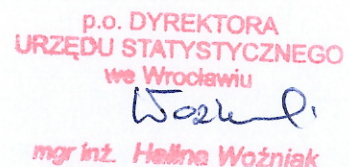 p.o. DYREKTORA
URZĘDU STATYSTYCZNEGO
we Wrocławiu
mgr inż. Halina Woźniak